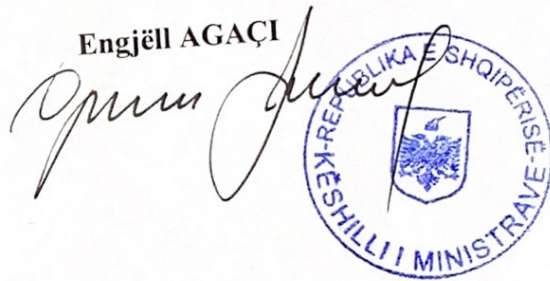 Engjëll AGAÇI
REPUBLIKA E SHQIPËRISË-
-KËSHILLI I MINISTRAVE-